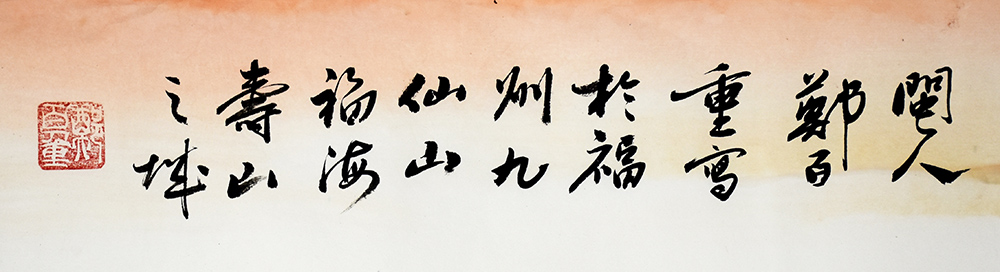 閩人
鄭百
重寫
於福
州九
仙山
福海
壽山
之城
鄭百重